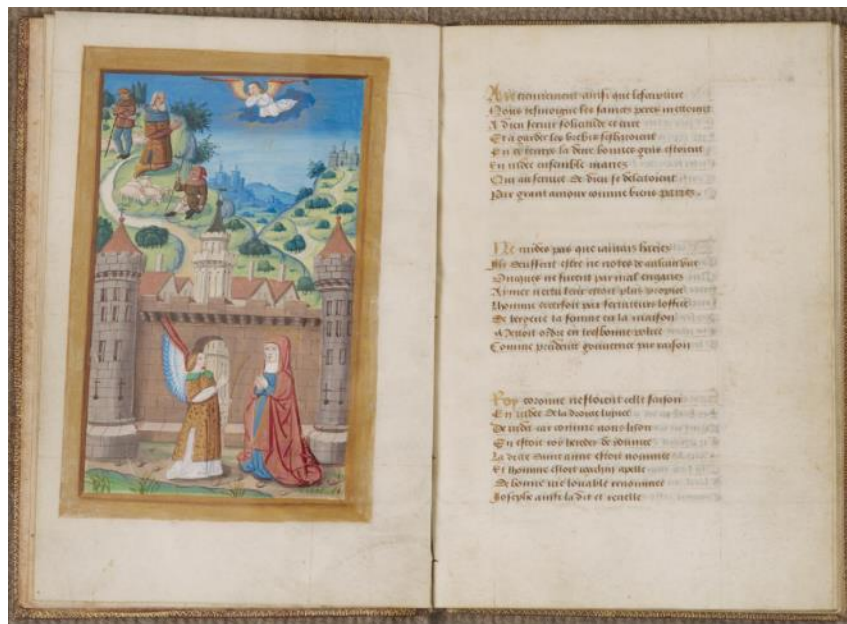 ainsi que lescripture
Nous tesmoigne les sainctz peres mettoient
A dieu seruir solicitude et cure
Et a garder les bestes
En ce temps la deux bonnes gens estoient
En iudee ensemble mariez
Qui au seruice de dieu se delectoient
Par grant amour comme biens pariez
Ne cuidez pas que iamais
Ilz deussent estre ne notez de aulcun vice
Oncques ne furent par mal
Aymer vertu leur estoit plus propice
Lhomme par seruiteurs loffice
De bergerie la femme en la maison
tresbonne police
Comme prudente gouuerner par raison
Roy coronne nestoient celle saison
En iudee de la droicte lignee
De iuda car comme nous lison
En estoit roy herodes de
La dicte saincte anne estoit nommee
Et lhomme estoit ioachin apelle
De bonne vie louable renommee
Josephe ainsi la dit et reuelle